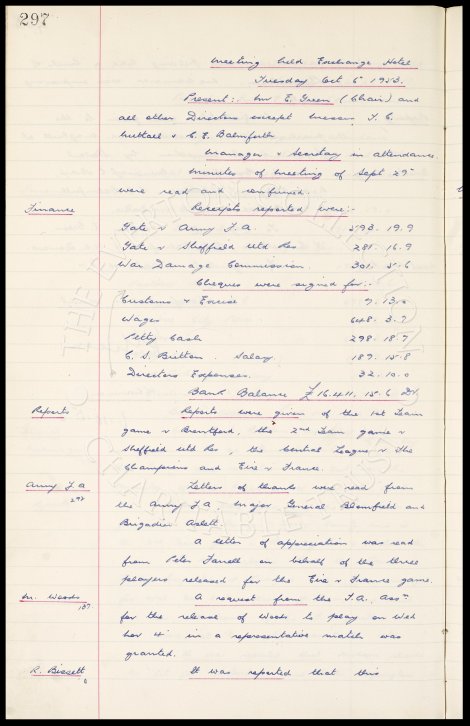 297
Meeting held Exchange Hotel
Tuesday Oct 6th 1953.
Present:- Mr E. Green (Chair) and
all other Directors except Messrs T. C.
Nuttall & C. E. Balmforth
Manager & Secretary in attendance.
Minutes of meeting of Sept 29th
were read and confirmed.
Finance
Receipts reported were:-
Gate v Army F.A. 593. 19. 9
Gate v Sheffield Utd Res 281. 16. 9
War Damage Commission. 301. 5. 6
Cheques were signed for:-
Customs & Excise 9. 13. 0
Wages 648. 3. 7
Petty Cash 298. 18. 7
C. S. Britton. Salary. 189. 15. 8
Directors Expenses. 32. 10. 0
Bank Balance £16,411. 15. 6 Dr
Reports
Reports were given of the 1st Team
game v Brentford, the 2nd Team game v
Sheffield Utd Res, the Central League v The
Champions and Eire v France.
Army F.A.
297
Letters of thanks were read from
the Army F.A. Major General Blomfield and
Brigadier Aslett.
A letter of appreciation was read
from Peter Farrell on behalf of the three
players released for the Eire v France game.
M. Woods
A request from the F.A. Assn
for the release of Woods to play on Wed
Nov 4th in a representative match was
granted.
R. Bissett
It was reported that this
THE EVERTON COLLECTION
CHARITABLE TRUST